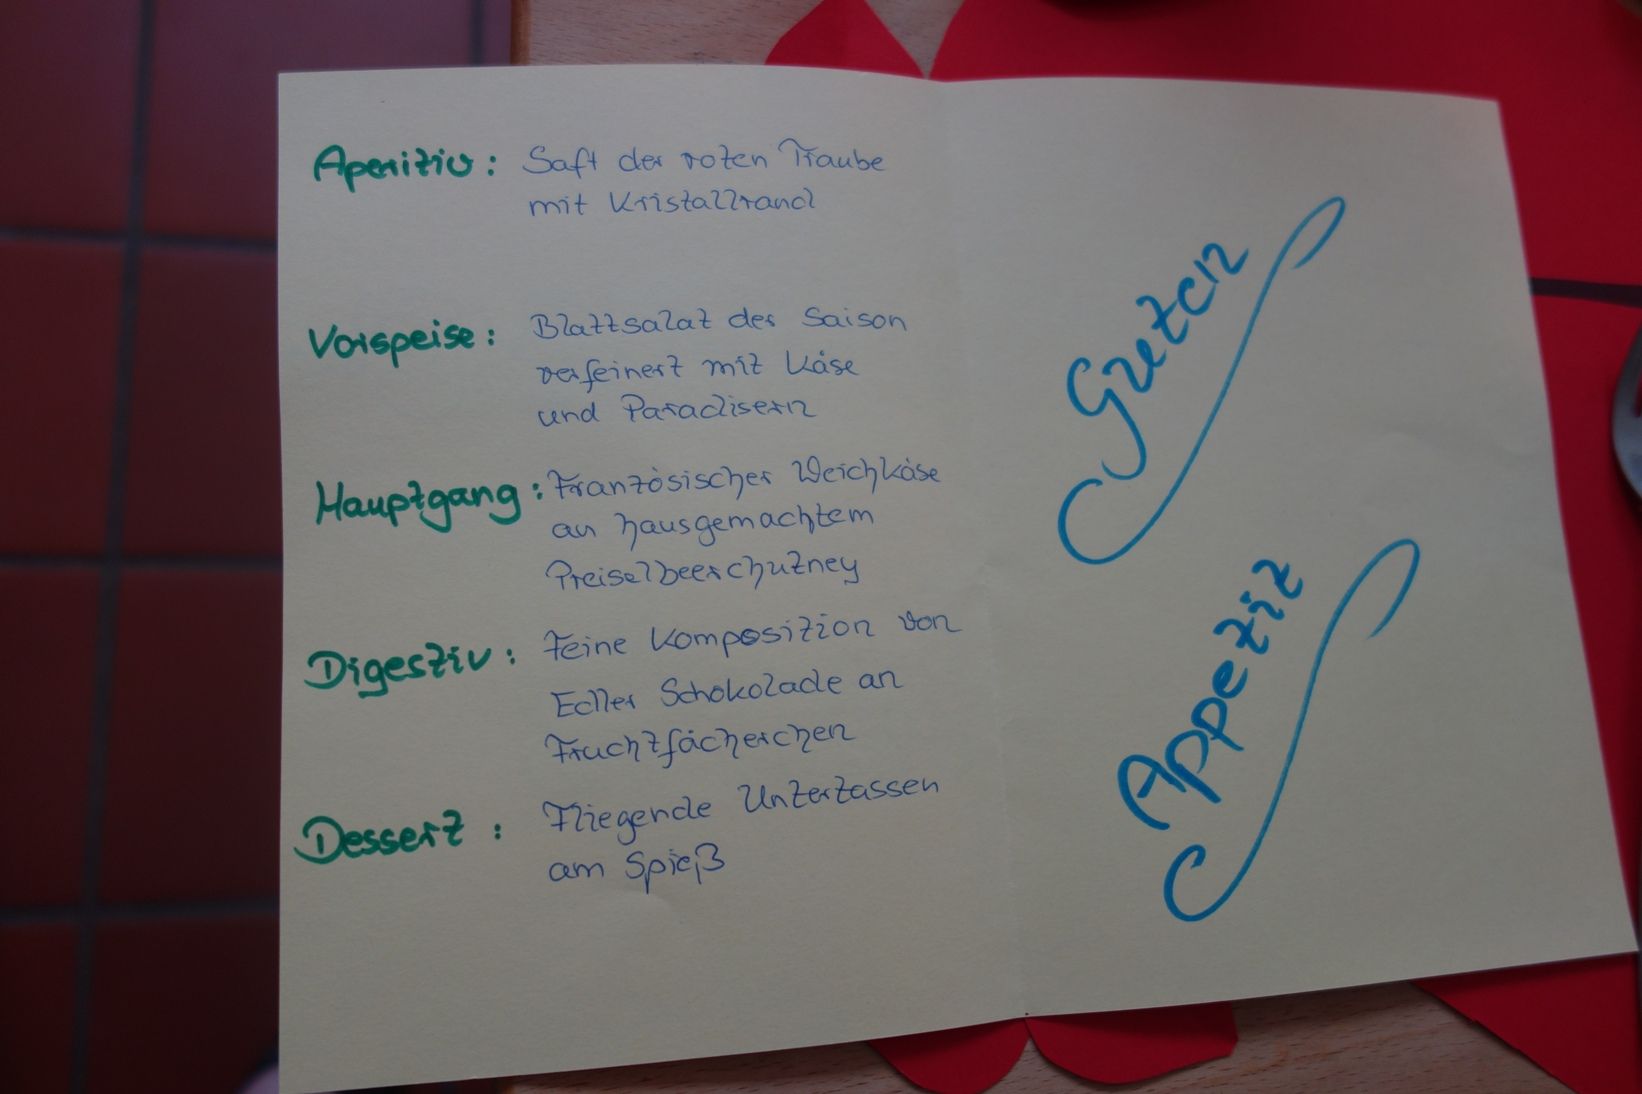 Aperitiv: Saft der roten Traube
mit Kristallrand
Vorspeise: Blattsalat der Saison
verfeinert mit Käse
und Paradisern
Hauptgang: Französischer Weichkäse
an hausgemachtem
Preiselbeerchutney
Digestiv: Feine Komposition von
Edler Schokolade an
Fruchtfächerchen
Dessert: Fliegende Untertassen
am Spieß
Guten
Appetit